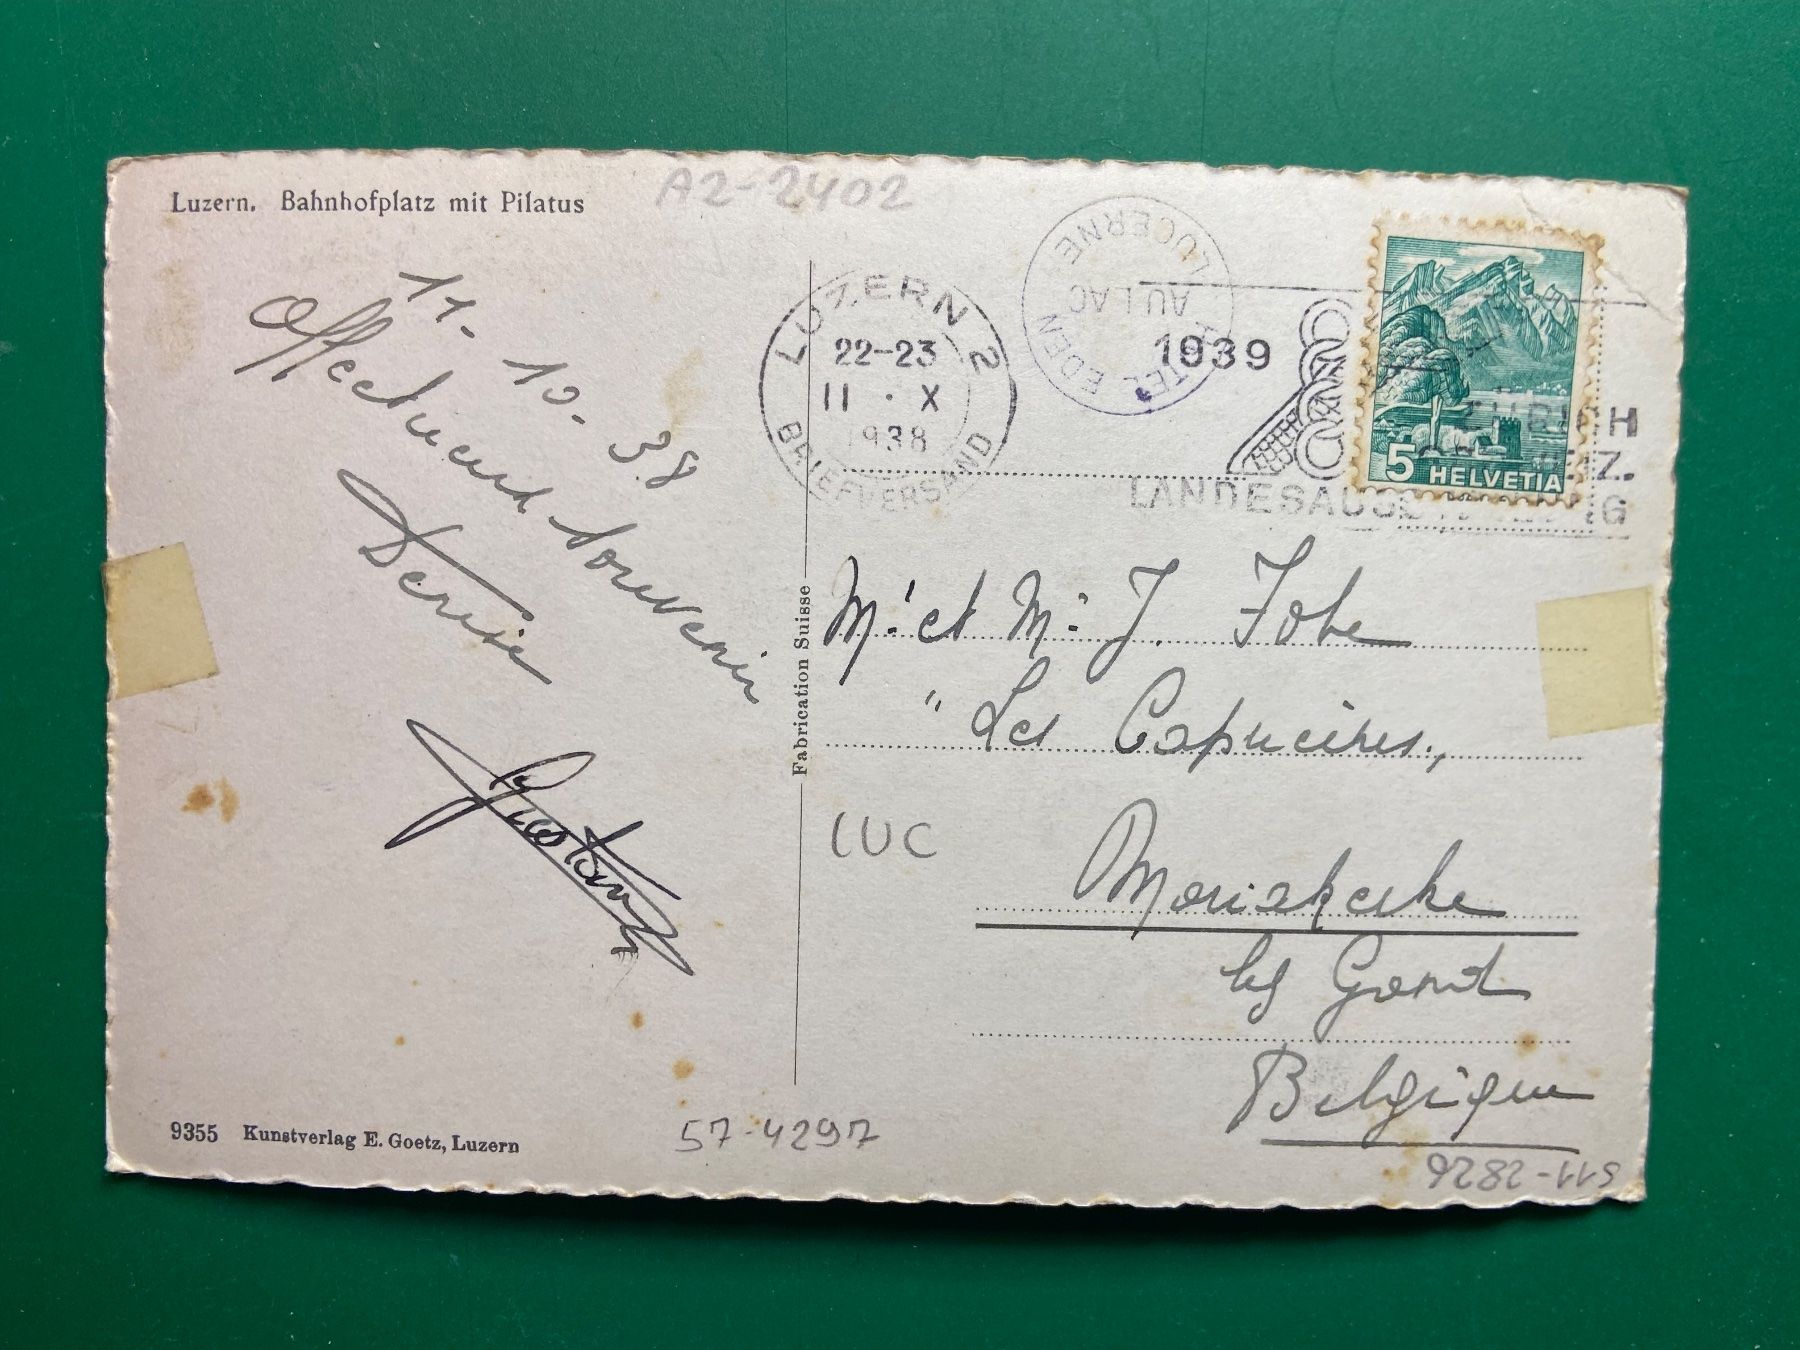 Luzern. Bahnhofplatz mit Pilatus
A2-2402
11-10-38
Affectueux souvenir
Denise
Gustave
LUZERN 2
22-23
11 · X
1938
BRIEFVERSAND
HOTEL EDEN
AU LAC
LUCERNE
1939
ZÜRICH
LANDESAUSSTELLUNG
5 HELVETIA
Fabrication Suisse
Mr et Me J. Jobe
"Les Capucines",
LUC
Mariakerke
lez Gand
Belgique
9355 Kunstverlag E. Goetz, Luzern
57-4297
S11-2826